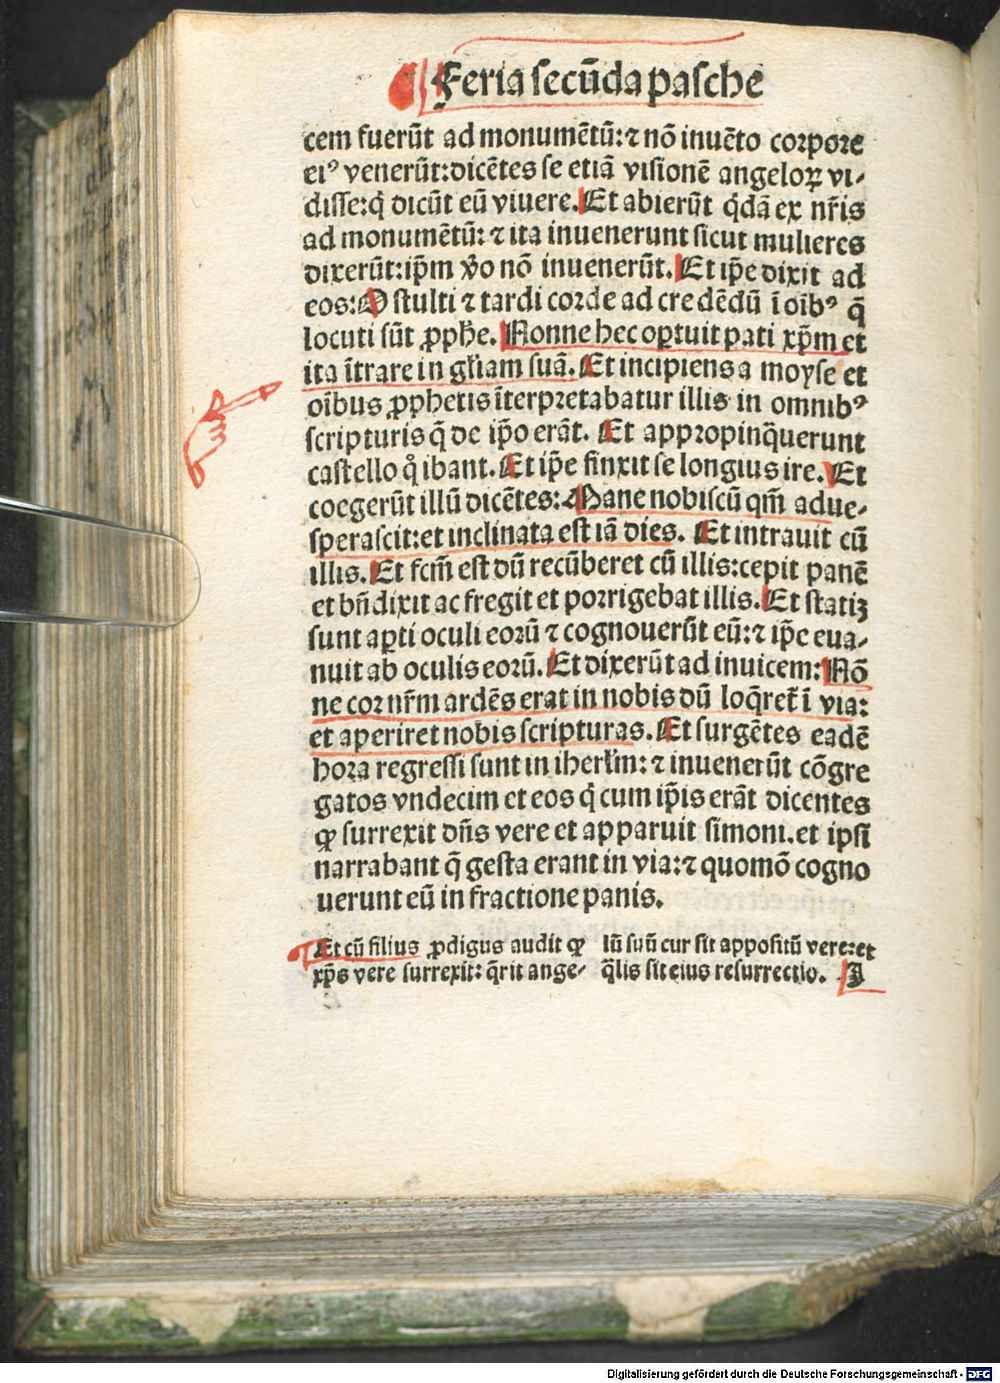 Feria secūda pasche
cem fuerūt ad monumētū: ⁊ nō inuēto corpore
eiꝰ venerūt: dicētes se etiā visionē angeloꝝ vi-
disse: q̄ dicūt eū viuere. Et abierūt q̇dā ex nr̄is
ad monumētū: ⁊ ita inuenerunt sicut mulieres
dixerūt: ip̄m v̄o nō inuenerūt. Et ip̄e dixit ad
eos: O stulti ⁊ tardi corde ad credēdū ī oīb̕ꝰ q̄
locuti sūt ꝓph̄e. Nonne hec oꝑtuit pati xp̄m et
ita ītrare in gl̄iam suā. Et incipiens a moyse et
oībus ꝓphetis īterpretabatur illis in omnibꝰ
scripturis q̄ de ip̄o erāt. Et appropinq̄uerunt
castello q̊ ibant. Et ip̄e finxit se longius ire. Et
coegerūt illū dicētes: Mane nobiscū qm̄ adue-
sperascit: et inclinata est iā dies. Et intrauit cū
illis. Et fcm̄ est dū recūberet cū illis: cepit panē
et bn̄dixit ac fregit et porrigebat illis. Et statiꝫ
sunt aꝑti oculi eorū ⁊ cognouerūt eū: ⁊ ip̄e eua-
nuit ab oculis eorū. Et dixerūt ad inuicem: Nō
ne cor nr̄m ardēs erat in nobis dū loq̄ret̄ ī via:
et aperiret nobis scripturas. Et surgētes eadē
hora regressi sunt in iherl̄m: ⁊ inuenerūt cōgre
gatos vndecim et eos q̇ cum ip̄is erāt dicentes
ꝙ surrexit dn̄s vere et apparuit simoni. et ipsi
narrabant q̄ gesta erant in via: ⁊ quomō cogno
uerunt eū in fractione panis.
Et cū filius ꝓdigus audit ꝙ
xp̄s vere surrexit: q̄rit ange-
lū suū cur sit appositū vere: et
q̄lis sit eius resurrectio. J
Digitalisierung gefördert durch die Deutsche Forschungsgemeinschaft - DFG